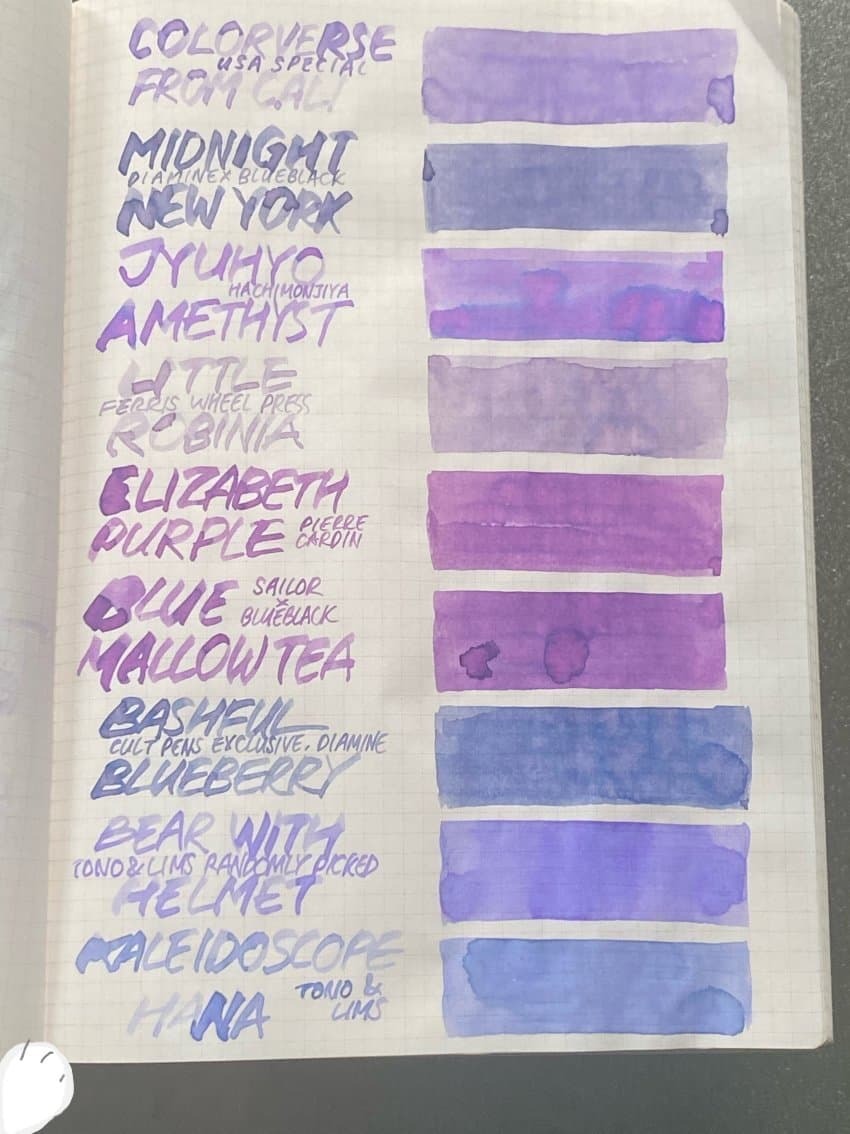 COLORVERSE
USA SPECIAL
FROM CALI
MIDNIGHT
DIAMINE X BLUEBLACK
NEW YORK
JYUHYO
HACHIMONJIYA
AMETHYST
LITTLE
FERRIS WHEEL PRESS
ROBINIA
ELIZABETH
PURPLE PIERRE
CARDIN
BLUE SAILOR
X
BLUEBLACK
MALLOW TEA
BASHFUL
CULT PENS EXCLUSIVE. DIAMINE
BLUEBERRY
BEAR WITH
TONO & LIMS RANDOMLY PICKED
HELMET
KALEIDOSCOPE
HANA TONO &
LIMS